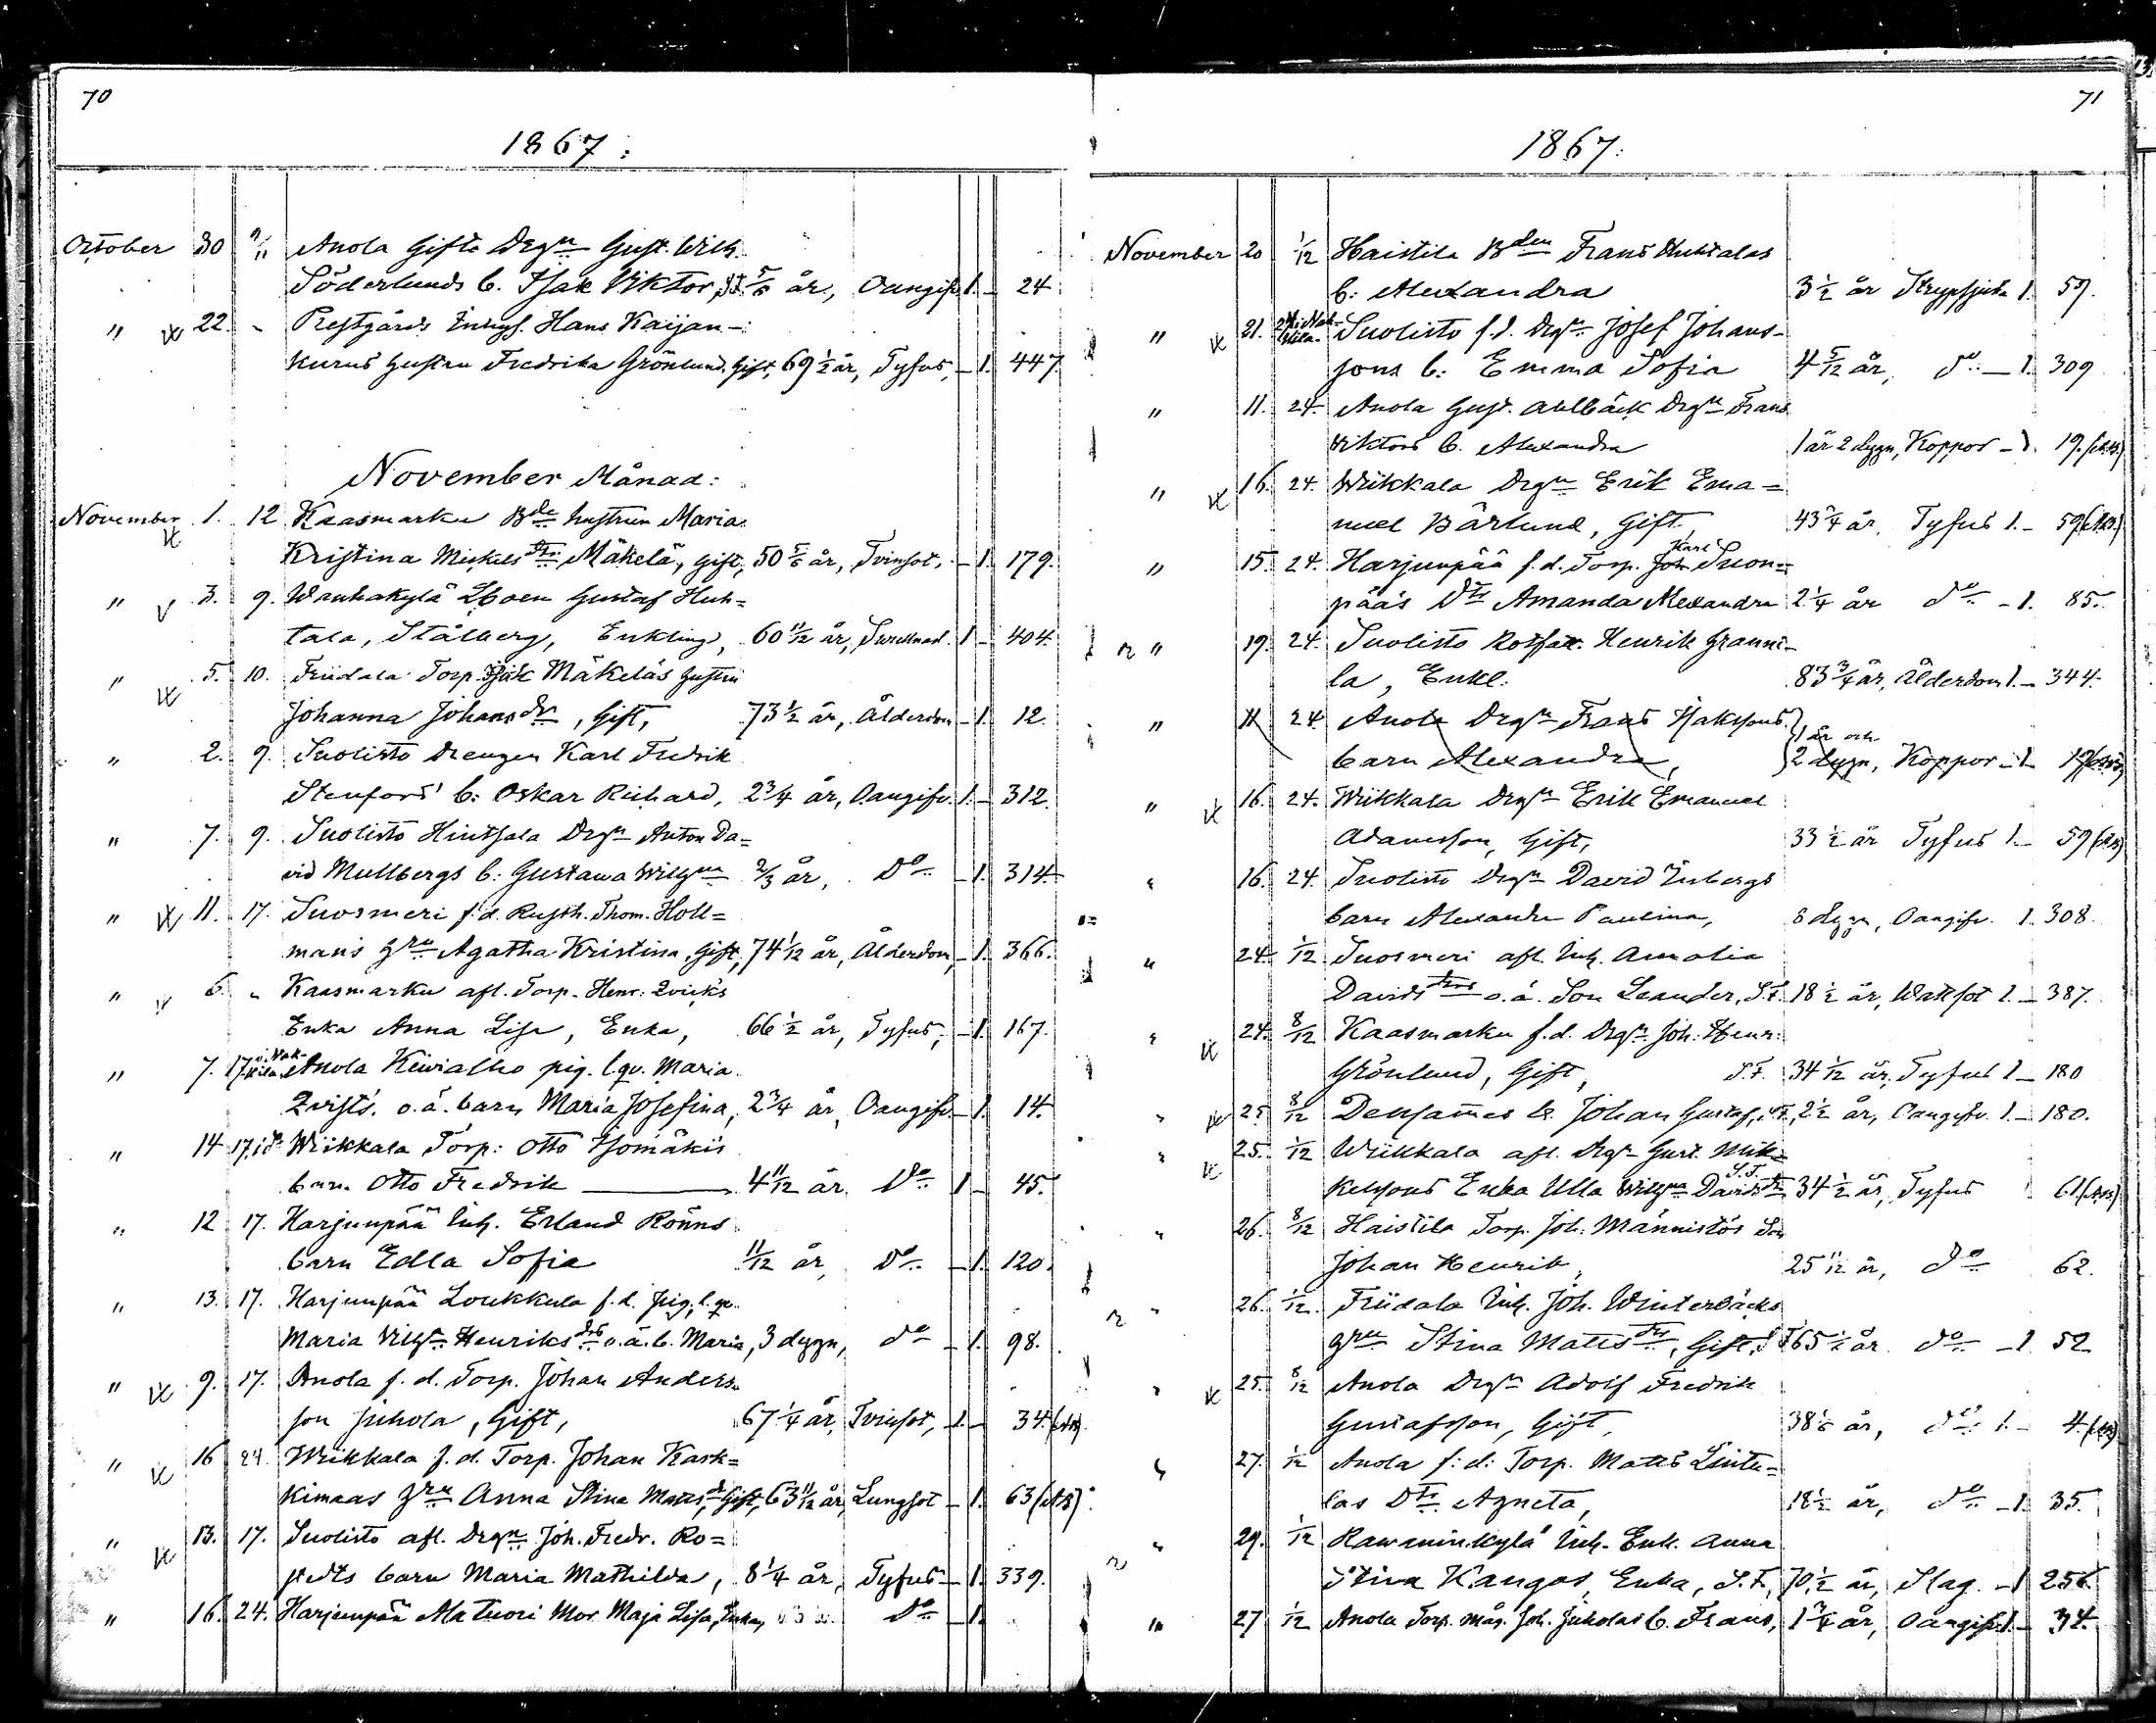 70
1867:
October 30 9/11 Anola Gifte Drgn Gust. Wilh.
Söderlunds b. Isak Viktor, 5/6 år, Oangifv. 1. - 24
" 22. - Prestgårds Inhys. Hans Kaijan-
kurus hustru Fredrika Grönlund. Gift, 69 1/2 år, Tyfus, - 1. 447
November Månad:
November 1. 12 Kaasmarku Bde hustrun Maria
Kristina Mickels dtr Mäkelä, Gift, 50 5/6 år, Tvinsot, - 1. 179.
" 3. 9. Wanhakylä Gustaf Huh=
tala, Stålberg, Enkling, 60 11/12 år, 1 - 404.
" 5. 10. Friidala Torp. Isak Mäkeläs hustru
Johanna Johansdr, Gift, 73 1/2 år, Ålderdom - 1. 12.
" 2. 9. Suolisto drengen Karl Fredrik
Stenfors' b: Oskar Richard, 2 3/4 år, Oangifv. 1. - 312.
" 7. 9. Suolisto Hintsala Drgn Anton Da=
vid Mullbergs b: Gustawa Wilhma 2/3 år, Do - 1. 314.
" 11. 17. Suosmeri f.d. Rusth. Thom. Holl=
man's hru Agatha Kristina, Gift, 74 1/12 år, Ålderdom, - 1. 366.
" 6. " Kaasmarku afl. Torp. Henr: Qvick's
Enka Anna Lisa, Enka, 66 1/2 år, Tyfus, - 1. 167.
" 7. 17. i Nak-kila Anola Kiwialho pig. l.qv. Maria
Qvists. o.ä. barn Maria Josefina, 2 3/4 år, Oangifv. - 1. 14.
" 14 17. i do Wiikkala Torp: Otto Isomäkis
barn Otto Fredrik 4 11/12 år. Do 1 - 45.
" 12 17. Harjunpää Inh. Erland Röuns
barn Edla Sofia 11/12 år, Do - 1. 120.
" 13. 17. Harjunpää Loukkula f.d. pig. l.qv.
Maria Wilhma Henriksdtrs o.ä. b. Maria, 3 dygn, do - 1. 98.
" 9. 17. Anola f. d. Torp. Johan Anders-
son Juhola, Gift, 67 1/4 år, Tvinsot, - 1 - 34.
" 16 24. Wiikkala f. d. Torp. Johan Kark=
kimaas hru Anna Stina Matts dr Gift, 63 11/12 år, Lungsot - 1. 63
" 13. 17. Suolisto afl. Drgn Joh. Fredr. Ro=
stedts barn Maria Mathilda, 8 1/4 år, Tyfus - 1. 339.
" 16. 24. Harjunpää Matuori Mor Maja Lisa, Enka, Do - 1.
71
1867:
November 20 1/12 Haistila Bden Frans Uuitalos
b: Alexandra 3 1/2 år Strypsjuka 1. 59.
" 21. 24 i Nak-kila Suolisto f.d. Drgn Josef Johans-
sons b: Emma Sofia 4 5/12 år, do - 1. 309
" 11. 24. Anola Gust. Ahlbäck Drgn Frans
Viktors b. Alexandra 1 år 2 dygn, Koppor - 1. 19.
" 16. 24. Wiikkala Drgn Erik Ema=
nuel Bärlund, Gift 43 3/4 år, Tyfus 1. - 59
" 15. 24. Harjunpää f.d. Torp. Joh. Karl Suon=
pää's Dtr Amanda Alexandra 2 1/4 år do - 1. 85.
" 19. 24. Suolisto Rotfatt. Henrik Granni-
la, Enkl. 83 3/4 år, Ålderdom 1. - 344.
" 11 24 Anola Drgn Frans Isaksons
barn Alexandra, 1 år och 2 dygn, Koppor - 1 19
" 16. 24. Wiikkala Drgn Erik Emanuel
Adamsson, Gift, 33 1/2 år Tyfus 1. - 59
" 16. 24. Suolisto Drgn David Inbergs
barn Alexandra Paulina, 8 dygn, Oangifv. 1. 308.
" 24. 1/12 Suosmeri afl. Inh. Amalia
Davidsdtrs o.ä. Son Leander, S.F. 18 1/2 år, Watsot 1. - 387.
" 24. 8/12 Kaasmarku f.d. Drgn Joh: Henr:
Grönlund, Gift, S.F. 34 1/12 år, Tyfus 1 - 180
" 25. 8/12 Densammes b. Johan Gustaf, S.F., 2 1/2 år, Oangifv. 1. - 180.
" 25. 1/12 Wiikkala afl. Drgn Gust. Mik=
kelsons Enka Ulla Wilhma Davidsdtr S.F. 34 1/2 år, Tyfus 61
" 26. 8/12 Haistila Torp. Joh. Männistös Son
Johan Henrik, 25 11/12 år, do 62.
" 26. 1/12. Friidala Inh. Joh. Winterbäcks
hru Stina Mattsdtr, Gift, S.F. 65 1/2 år do - 1 52
" 25. 8/12 Anola Drgn Adolf Fredrik
Gustafsson, Gift, 38 1/6 år, do 1. - 4.
" 27. 1/12 Anola f: d: Torp. Matts Lintu=
las Dtr Agneta, 18 1/2 år, do - 1. 35.
" 29. 1/12 Rawaninkylä Inh. Enk. Anna
Stina Kangas, Enka, S.F., 70 1/2 år, Slag. - 1 256.
" 27 1/12 Anola Torp. måg. Joh. Juholas b. Frans, 1 3/4 år, Oangifv. 1. - 34.